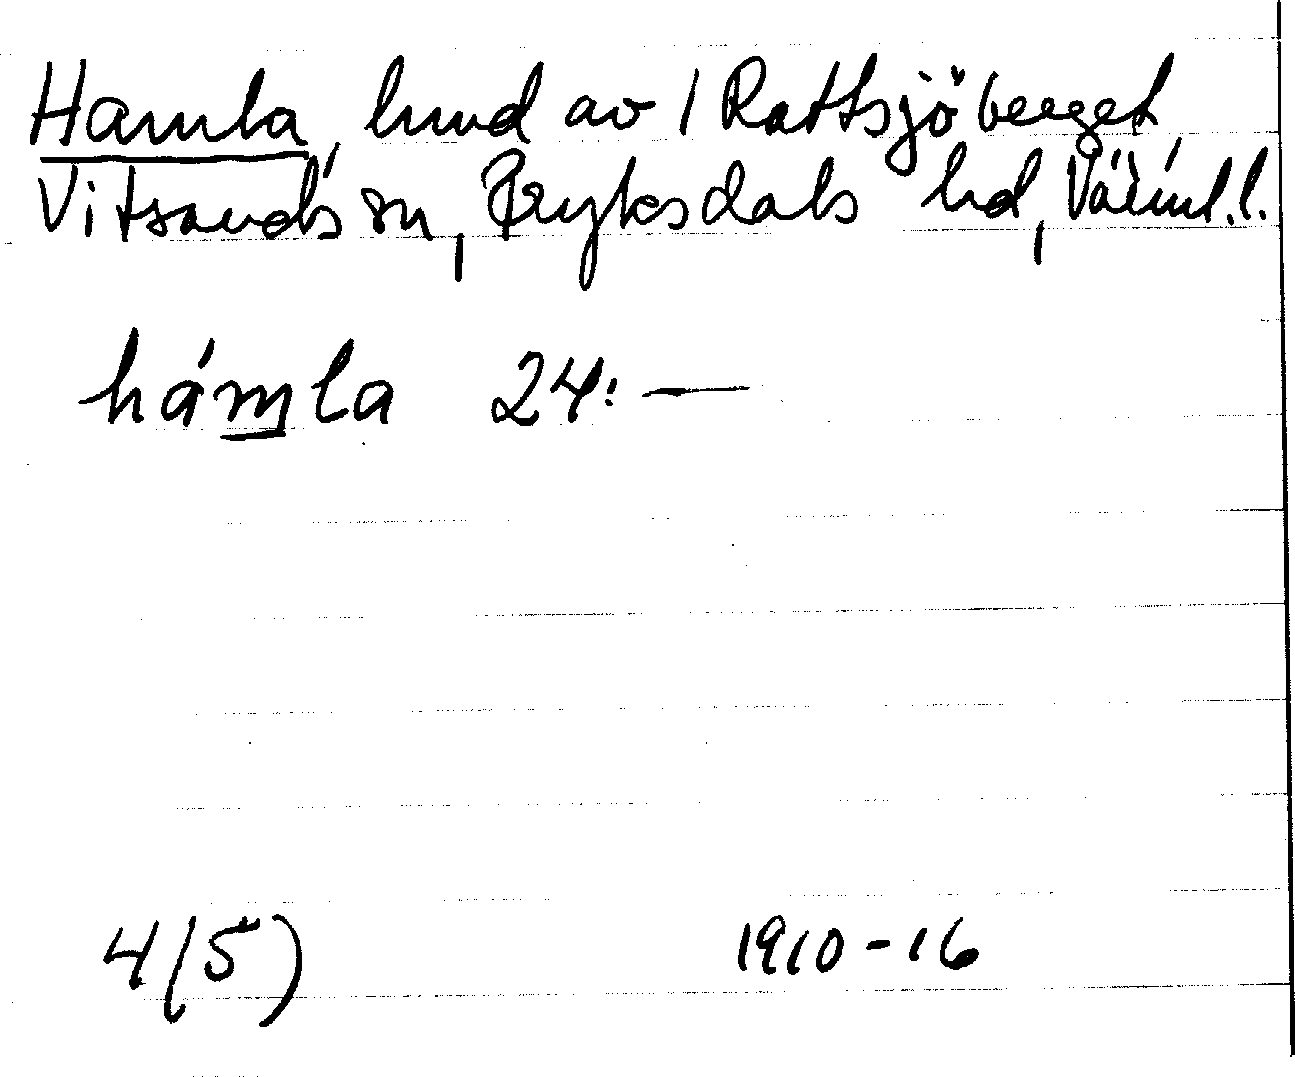 Hamla, hmd av 1 Rattsjöberget
Vitsands sn, Fryksdals hd, Värml. l.
hámla 24: —
4(5) 1910-16